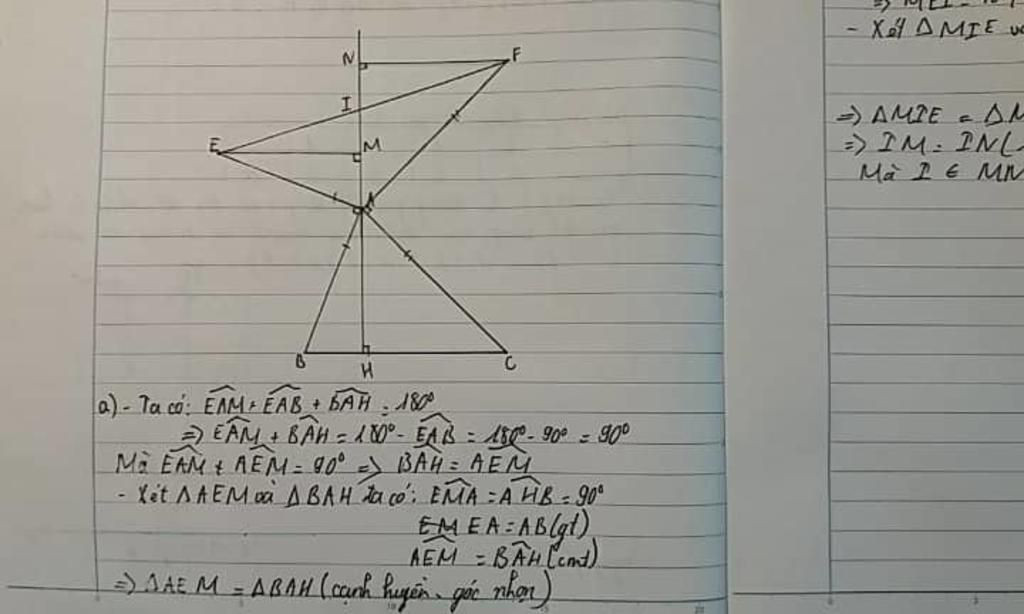 N
F
I
E
M
A
B
H
C
a) - Ta có: EAM + EAB + BAH = 180°
=> EAM + BAH = 180° - EAB = 180° - 90° = 90°
Mà EAM + AEM = 90° => BAH = AEM
- Xét ΔAEM và ΔBAH ta có: EMA = AHB = 90°
EM EA = AB (gt)
AEM = BAH (cmt)
=> ΔAEM = ΔBAH (cạnh huyền - góc nhọn)
- Xét ΔMIE
=> ΔMIE = ΔM
=> IM = IN (
Mà I ∈ MN